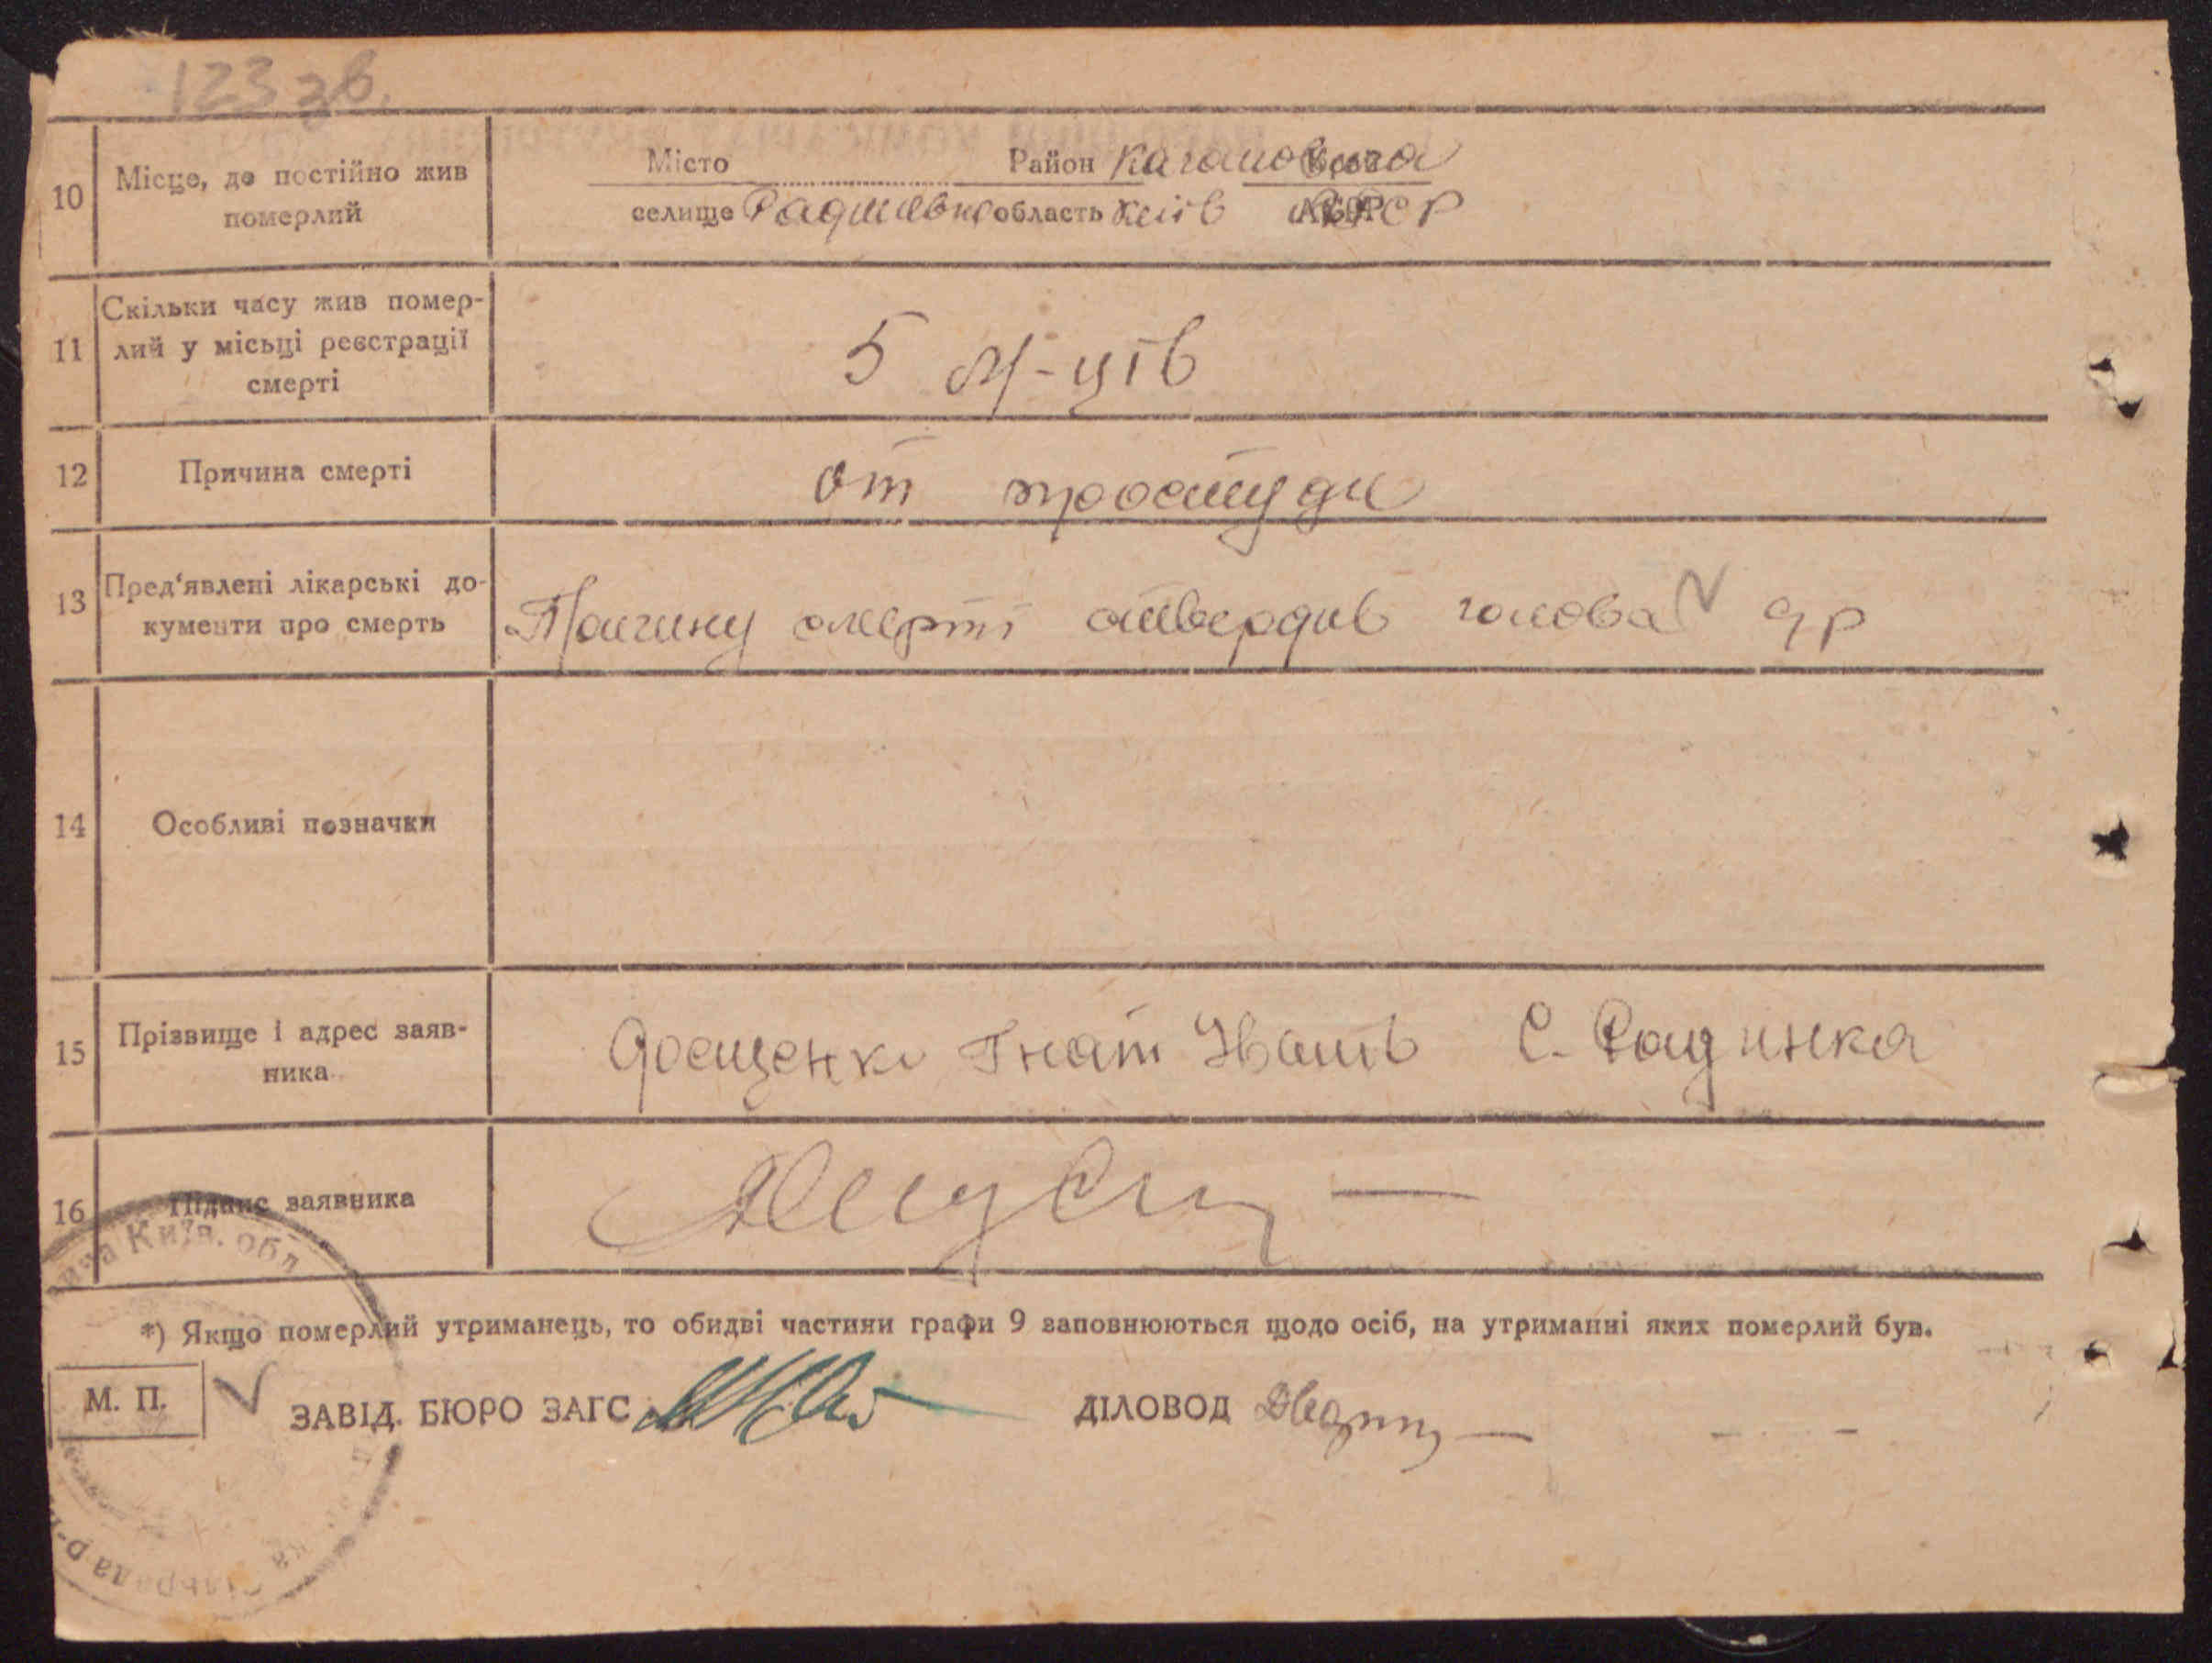 123 зв.
10 Місце, де постійно жив померлий
Місто Район Кагановича Край
селище область Київ АСРР
11 Скільки часу жив помер-
лий у місьці реєстрації
смерті
5 м-ців
12 Причина смерті
от простуди
13 Пред'явлені лікарські до-
кументи про смерть
Причину смерті ствердив голова
14 Особливі позначки
15 Прізвище і адрес заяв-
ника
Гнат Іванів С.
16 Підпис заявника
ича Київ. обл
*) Якщо померлий утриманець, то обидві частини графи 9 заповнюються щодо осіб, на утриманні яких померлий був.
М. П.
ЗАВІД. БЮРО ЗАГС ДІЛОВОД
сільрада р-н